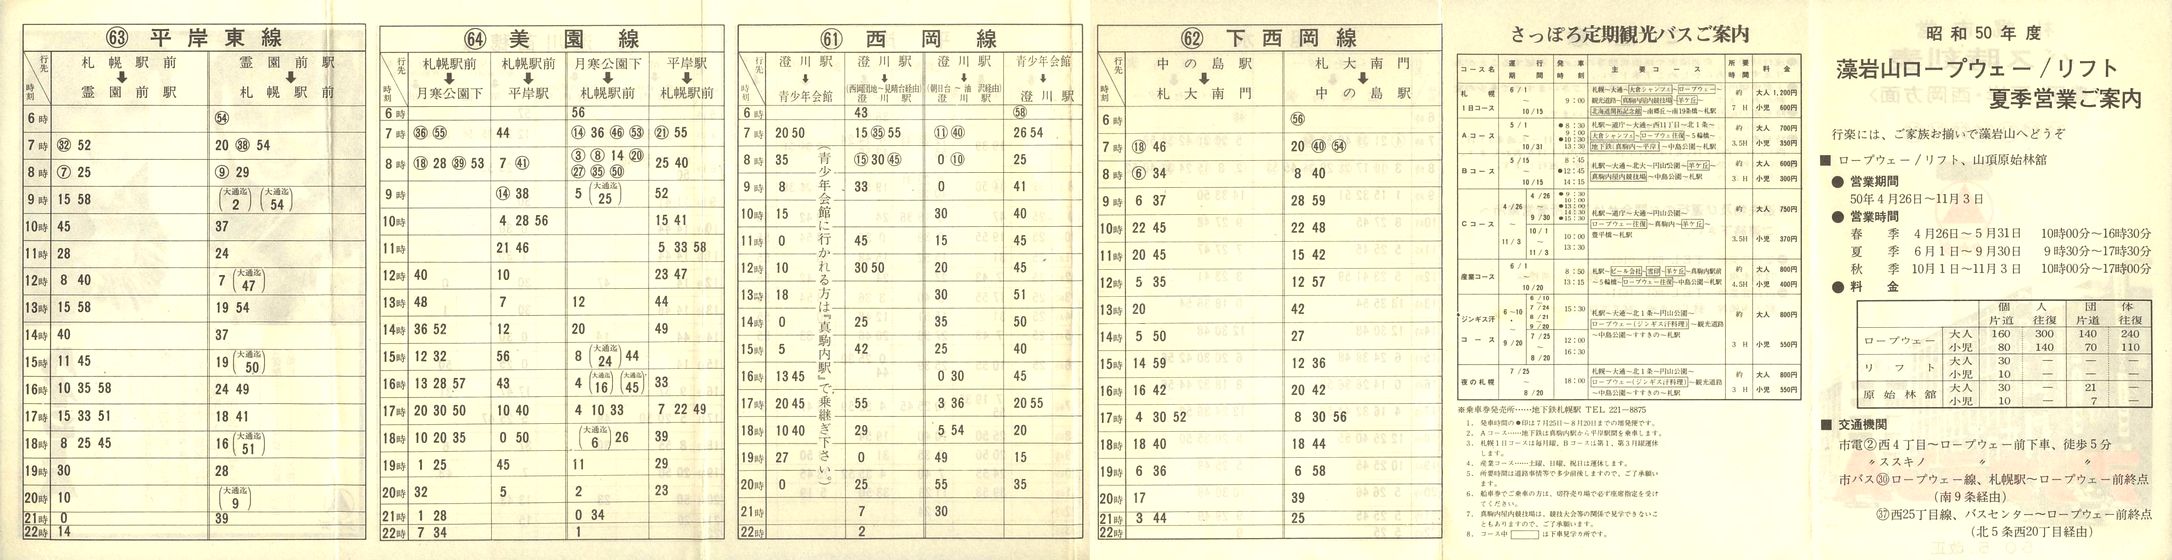 ㊿+13 平岸東線
行先 時刻
札幌駅前 ↓ 霊園前駅
霊園前駅 ↓ 札幌駅前
6時 54
7時 ㉜ 52 20 ㊳ 54
8時 ⑦ 25 ⑨ 29
9時 15 58 (大通迄 2) (大通迄 54)
10時 45 37
11時 28 24
12時 8 40 7 (大通迄 47)
13時 15 58 19 54
14時 40 37
15時 11 45 19 (大通迄 50)
16時 10 35 58 24 49
17時 15 33 51 18 41
18時 8 25 45 16 (大通迄 51)
19時 30 28
20時 10 (大通迄 9)
21時 0 39
22時 14
64 美園線
行先 時刻
札幌駅前 ↓ 月寒公園下
札幌駅前 ↓ 平岸駅
月寒公園下 ↓ 札幌駅前
平岸駅 ↓ 札幌駅前
6時 56
7時 ㊱ 55 44 ⑭ 36 ㊻ 53 ㉑ 55
8時 ⑱ 28 ㊴ 53 7 ㊶ ③ ⑧ 14 ⑳ ㉗ ㉟ ㊿ 25 40
9時 ⑭ 38 5 (大通迄 25) 52
10時 4 28 56 15 41
11時 21 46 5 33 58
12時 40 10 23 47
13時 48 7 12 44
14時 36 52 12 20 49
15時 12 32 56 8 (大通迄 24) 44
16時 13 28 57 43 4 (大通迄 16) (大通迄 45) 33
17時 20 30 50 10 40 4 10 33 7 22 49
18時 10 20 35 0 50 (大通迄 6) 26 39
19時 1 25 45 11 29
20時 32 5 2 23
21時 1 28 0 34
22時 7 34 1
61 西岡線
行先 時刻
澄川駅 ↓ 青少年会館
澄川駅 ↓ (西岡団地〜見晴台経由) 澄川駅
澄川駅 ↓ (朝日台〜滝沢経由) 澄川駅
青少年会館 ↓ 澄川駅
(青少年会館に行かれる方は『真駒内駅』で乗継ぎ下さい。)
6時 43 58
7時 20 50 15 ㉟ 55 ⑪ ㊵ 26 54
8時 35 ⑮ 30 ㊺ 0 ⑩ 25
9時 8 33 0 41
10時 15 30 40
11時 0 45 15 45
12時 10 30 50 20 45
13時 18 30 51
14時 0 25 35 50
15時 5 42 25 40
16時 13 45 0 30 45
17時 20 45 55 3 36 20 55
18時 10 40 29 5 54 20
19時 27 0 49 15
20時 0 25 55 35
21時 7 30
22時 2
62 下西岡線
行先 時刻
中の島駅 ↓ 札大南門
札大南門 ↓ 中の島駅
6時 56
7時 ⑱ 46 20 ㊵ 54
8時 ⑥ 34 8 40
9時 6 37 28 59
10時 22 45 22 48
11時 20 45 15 42
12時 5 35 12 57
13時 20 42
14時 5 50 27
15時 14 59 12 36
16時 16 42 20 42
17時 4 30 52 8 30 56
18時 18 40 18 44
19時 6 36 6 58
20時 17 39
21時 3 44 25
22時
さっぽろ定期観光バスご案内
コース名 運行期間 発車時刻 主要コース 所要時間 料金
札幌1日コース 6/1〜10/15 9:00 札幌〜大通〜大倉シャンツェ〜ロープウェー〜観光道路〜真駒内屋内競技場〜羊ケ丘〜北海道開拓記念館〜南郷丘〜南19条橋〜札駅 約7H 大人1,200円 小児600円
Aコース 5/1〜10/31 ●8:30 9:00 ●10:30 13:30 札駅〜道庁〜大通〜西11丁目〜北1条〜大倉シャンツェ〜ロープウェー往復〜5輪橋〜地下鉄(真駒内〜平岸)〜中島公園〜札駅 約3.5H 大人700円 小児350円
Bコース 5/15〜10/15 8:45 ●12:45 14:15 札駅〜大通〜北大〜円山公園〜羊ケ丘〜真駒内屋内競技場〜中島公園〜札駅 約3H 大人600円 小児300円
Cコース 4/26〜11/3 4/26〜9/30 10/1〜11/3 10:00 13:30 札駅〜道庁〜大通〜円山公園〜ロープウェー往復〜真駒内〜羊ケ丘〜豊平橋〜札駅 約3.5H 大人750円 小児370円
産業コース 6/1〜10/20 8:50 13:15 札駅〜ビール会社〜雪印〜羊ケ丘〜真駒内駅前〜5輪橋〜ロープウェー往復〜中島公園〜札駅 約4.5H 大人800円 小児400円
ジンギス汗コース 6〜10・9/20 6/10〜7/24 8/21〜9/20 15:30 7/25〜8/20 12:00 16:30 札駅〜大通〜北1条〜円山公園〜ロープウェー(ジンギス汗料理)〜観光道路〜中島公園〜すすきの〜札駅 約3H 大人800円 小児550円
夜の札幌 7/25〜8/20 18:00 札幌〜大通〜北1条〜円山公園〜ロープウェー(ジンギス汗料理)〜観光道路〜中島公園〜すすきの〜札駅 約3H 大人800円 小児550円
※乗車券発売所……地下鉄札幌駅 TEL 221-8875
1. 発車時間の●印は7月25日〜8月20日までの増発便です。
2. Aコース……地下鉄は真駒内駅から平岸駅間を乗車します。
3. 札幌1日コースは毎月曜、Bコースは第1、第3月曜運休します。
4. 産業コース……土曜、日曜、祝日は運休します。
5. 所要時間は道路事情等で多少前後しますので、ご了承願います。
6. 船車券でご乗車の方は、切符売り場で必ず座席指定を受けてください。
7. 真駒内屋内競技場は、競技大会等の関係で見学できないこともありますので、ご了承願います。
8. コース中□は下車見学カ所です。
昭和50年度
藻岩山ロープウェー/リフト
夏季営業ご案内
行楽には、ご家族お揃いで藻岩山へどうぞ
■ ロープウェー/リフト、山頂原始林館
● 営業期間
50年4月26日〜11月3日
● 営業時間
春季 4月26日〜5月31日 10時00分〜16時30分
夏季 6月1日〜9月30日 9時30分〜17時30分
秋季 10月1日〜11月3日 10時00分〜17時00分
● 料金
個人 団体
片道 往復 片道 往復
ロープウェー 大人 160 300 140 240
小児 80 140 70 110
リフト 大人 30 — — —
小児 10 — — —
原始林館 大人 30 — 21 —
小児 10 — 7 —
■ 交通機関
市電②西4丁目〜ロープウェー前下車、徒歩5分
〃ススキノ 〃 〃
市バス㉚ロープウェー線、札幌駅〜ロープウェー前終点
(南9条経由)
㊲西25丁目線、バスセンター〜ロープウェー前終点
(北5条西20丁目経由)